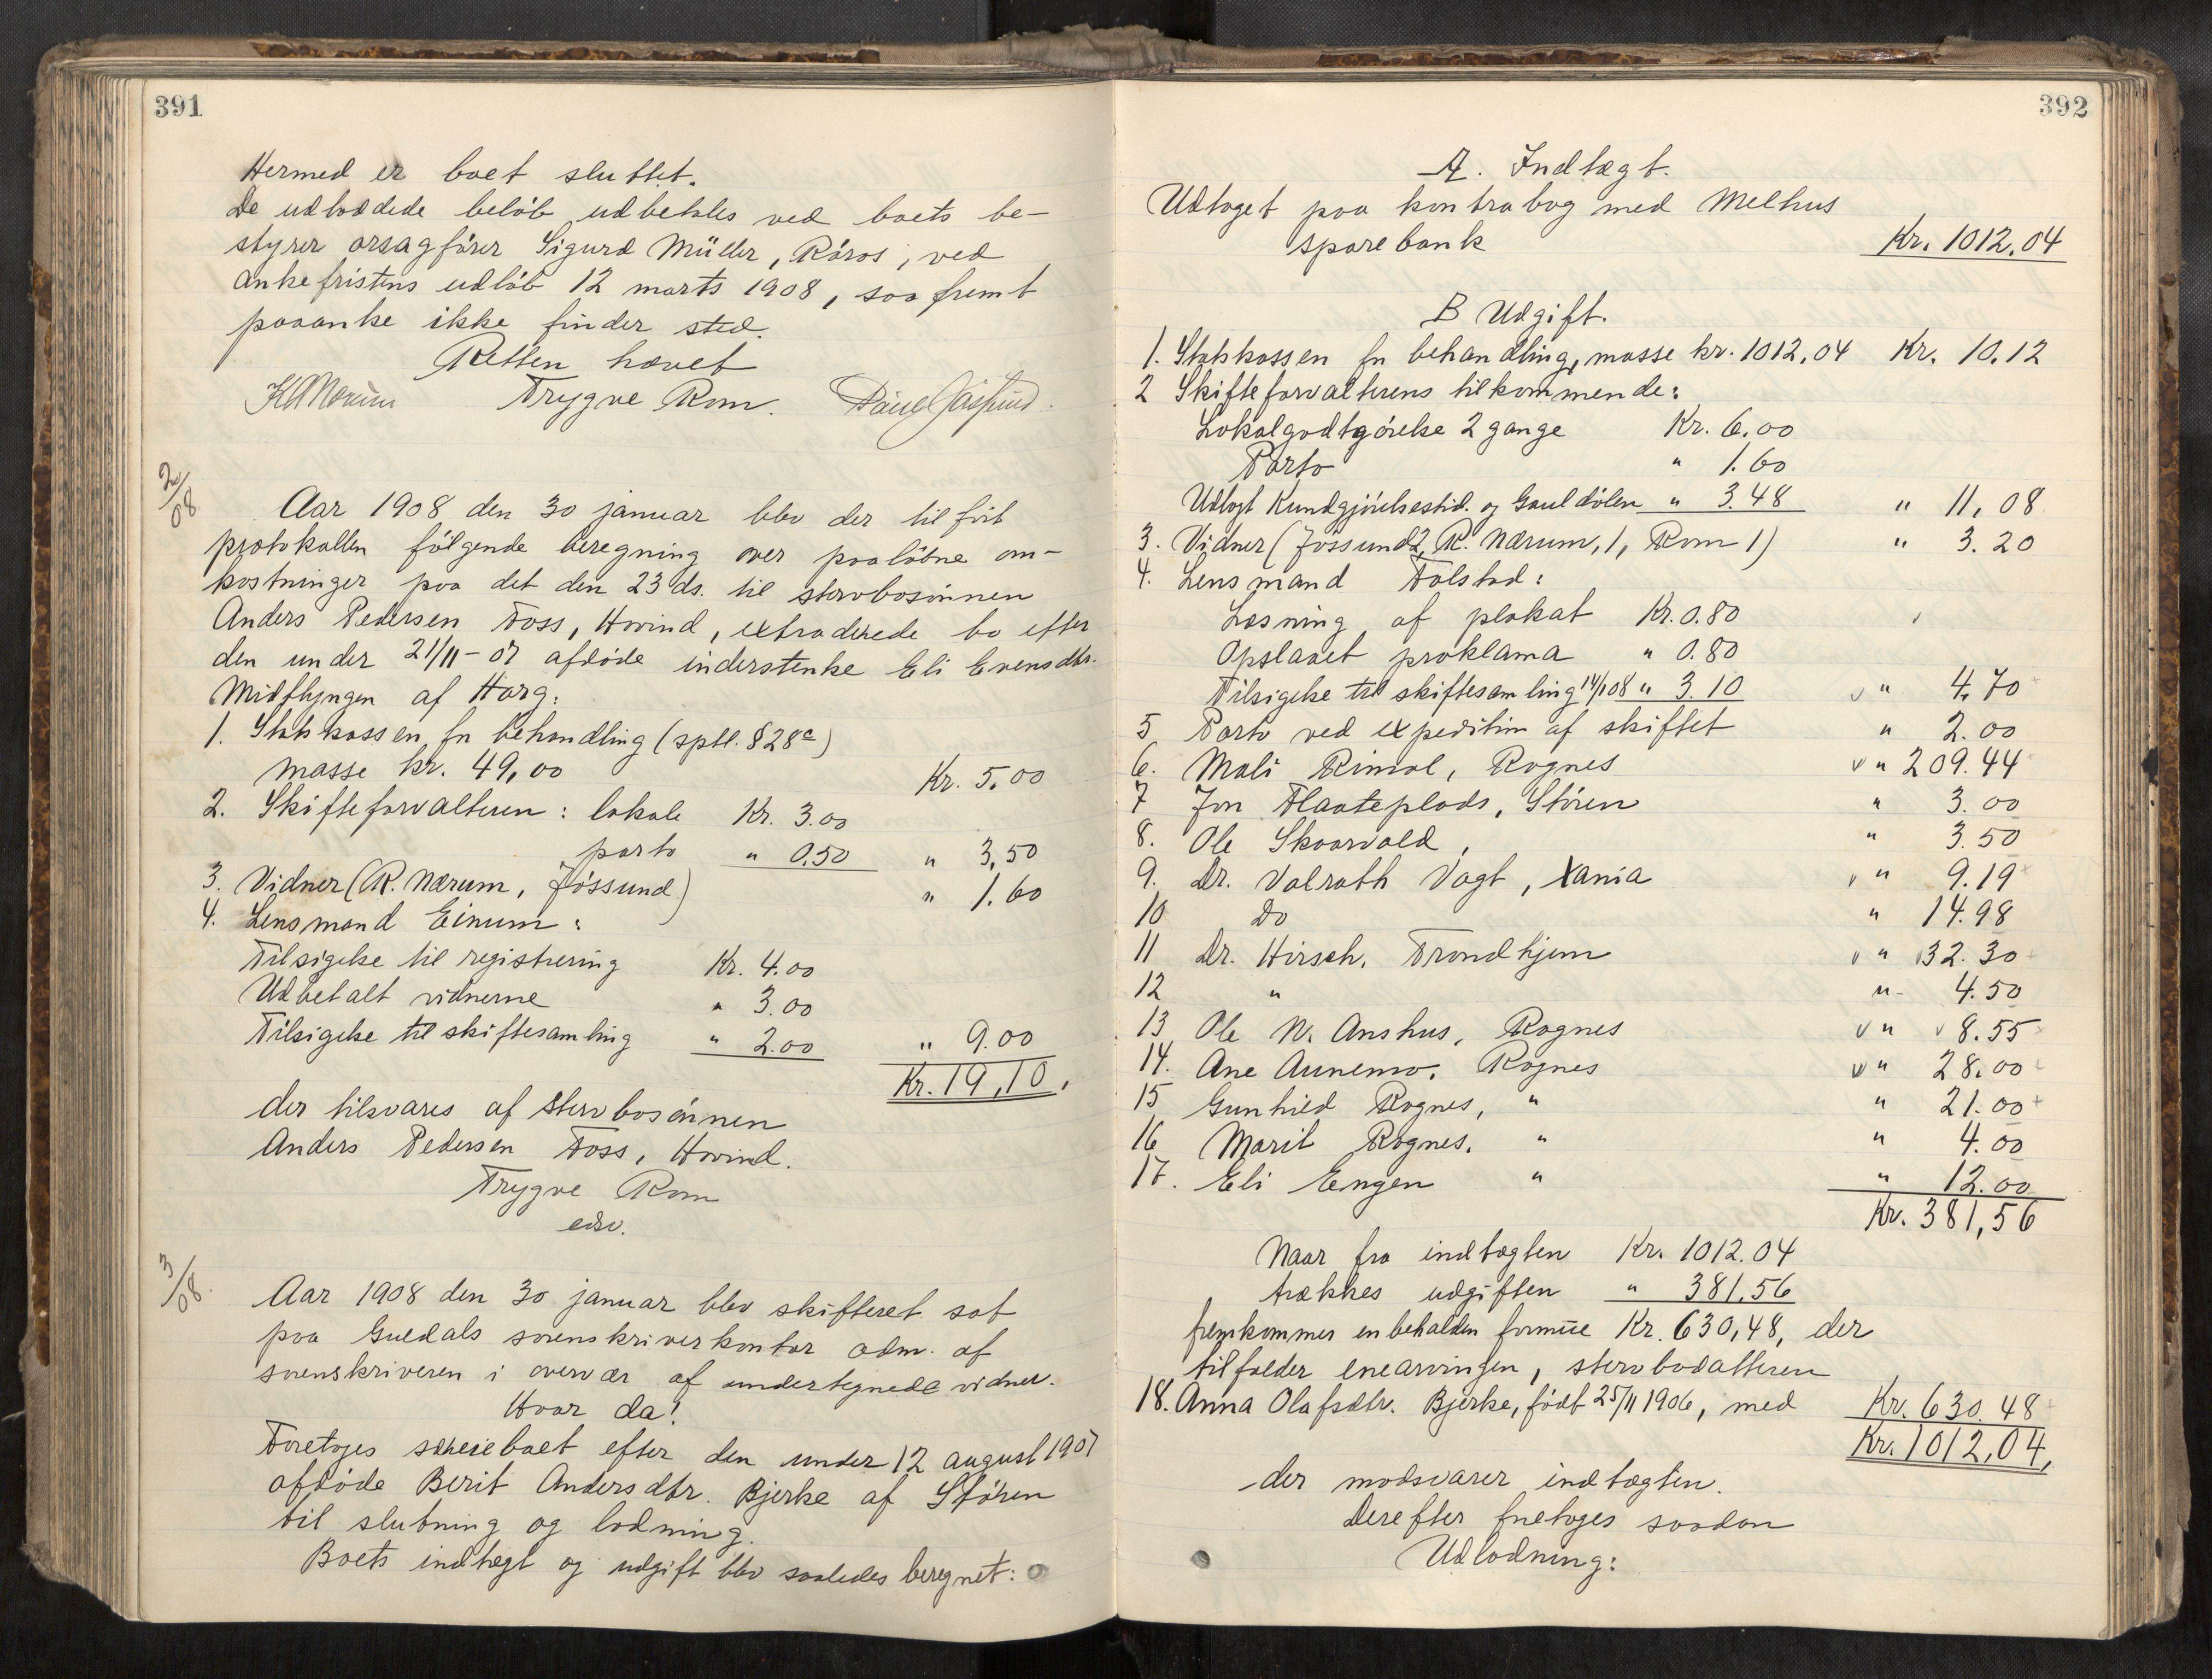 391
Hermed er boet sluttet.
De udloddede beløb udbetales ved boets be-
styrer orsagfører Sigurd Müller, Røros, ved
ankefristens udløb 12 marts 1908, saa fremt
paaanke ikke finder sted.
Retten hævet
KNærum Trygve Rom. Daniel Jøssund.
2/08
Aar 1908 den 30 januar blev der tilført
protokollen følgende beregning over paaløbne om-
kostninger paa det den 23 ds. til stervbosønnen
Anders Pedersen Foss, Hovind, extraderede bo efter
den under 21/11-07 afdøde inderstenke Eli Evensdtr.
Midtlyngen af Horg:
1. Statskassen for behandling (sptl. § 28 c)
masse kr. 49,00 Kr. 5.00
2. Skifteforvalteren: lokale Kr. 3.00
porto " 0.50 " 3,50
3. Vidner (R. Nærum, Jøssund) " 1.60
4. Lensmand Einum:
Tilsigelse til registrering Kr. 4.00
Udbetalt vidnerne " 3.00
Tilsigelse til skiftesamling " 2.00 " 9.00
Kr. 19,10.
der tilsvares af stervbosønnen
Anders Pedersen Foss, Hovind.
Trygve Rom
edsv.
3/08.
Aar 1908 den 30 januar blev skifteret sat
paa Guldals sorenskriverkontor adm. af
sorenskriveren i overvær af undertegnede vidner.
Hvor da!
Foretoges boet efter den under 12 august 1907
afdøde Berit Andersdtr. Bjerke af Støren
til slutning og lodning.
Boets indtægt og udgift blev saaledes beregnet:
392
A. Indtægt.
Udtaget paa kontrabog med Melhus
sparebank Kr. 1012,04
B Udgift.
1. Statskassen for behandling, masse kr. 1012,04 Kr. 10.12
2 Skifteforvalterens tilkommende:
Lokalgodtgørelse 2 gange Kr. 6,00
Porto " 1.60
Udlagt Kundgjørelsestid. og Gauldølen " 3.48 " 11,08
3. Vidner (Jøssund 2, R. Nærum, 1, Rom 1) " 3.20
4. Lensmand Folstad:
Læsning af plakat Kr. 0.80
Opslaaet proklama " 0.80
Tilsigelse til skiftesamling 14/1 08 " 3.10 " 4.70
5 Porto ved expedition af skiftet " 2.00
6. Mali Rimol, Rognes " 209.44
7 Jon Flaateplads, Støren " 3.00
8. Ole Skaarvold, " 3.50
9. Dr. Valrath Vogt, Xania " 9.19
10 Do " 14.98
11 Dr. Hirsch, Trondhjem " 32.30
12 " " 4.50
13 Ole N. Anshus, Rognes " 8.55
14. Ane Aunemo, Rognes " 28.00
15 Gunhild Rognes, " " 21.00
16 Marit Rognes, " " 4.00
17. Eli Engen " " 12.00
Kr. 381,56
Naar fra indtægten Kr. 1012.04
trækkes udgiften " 381.56
fremkommer en behalden formue Kr. 630,48, der
tilfalder enearvingen, stervbodatteren
18. Anna Olafsdtr. Bjerke, født 25/11 1906, med Kr. 630.48
Kr. 1012,04,
der modsvarer indtægten.
Derefter foretoges saadan
Udlodning: